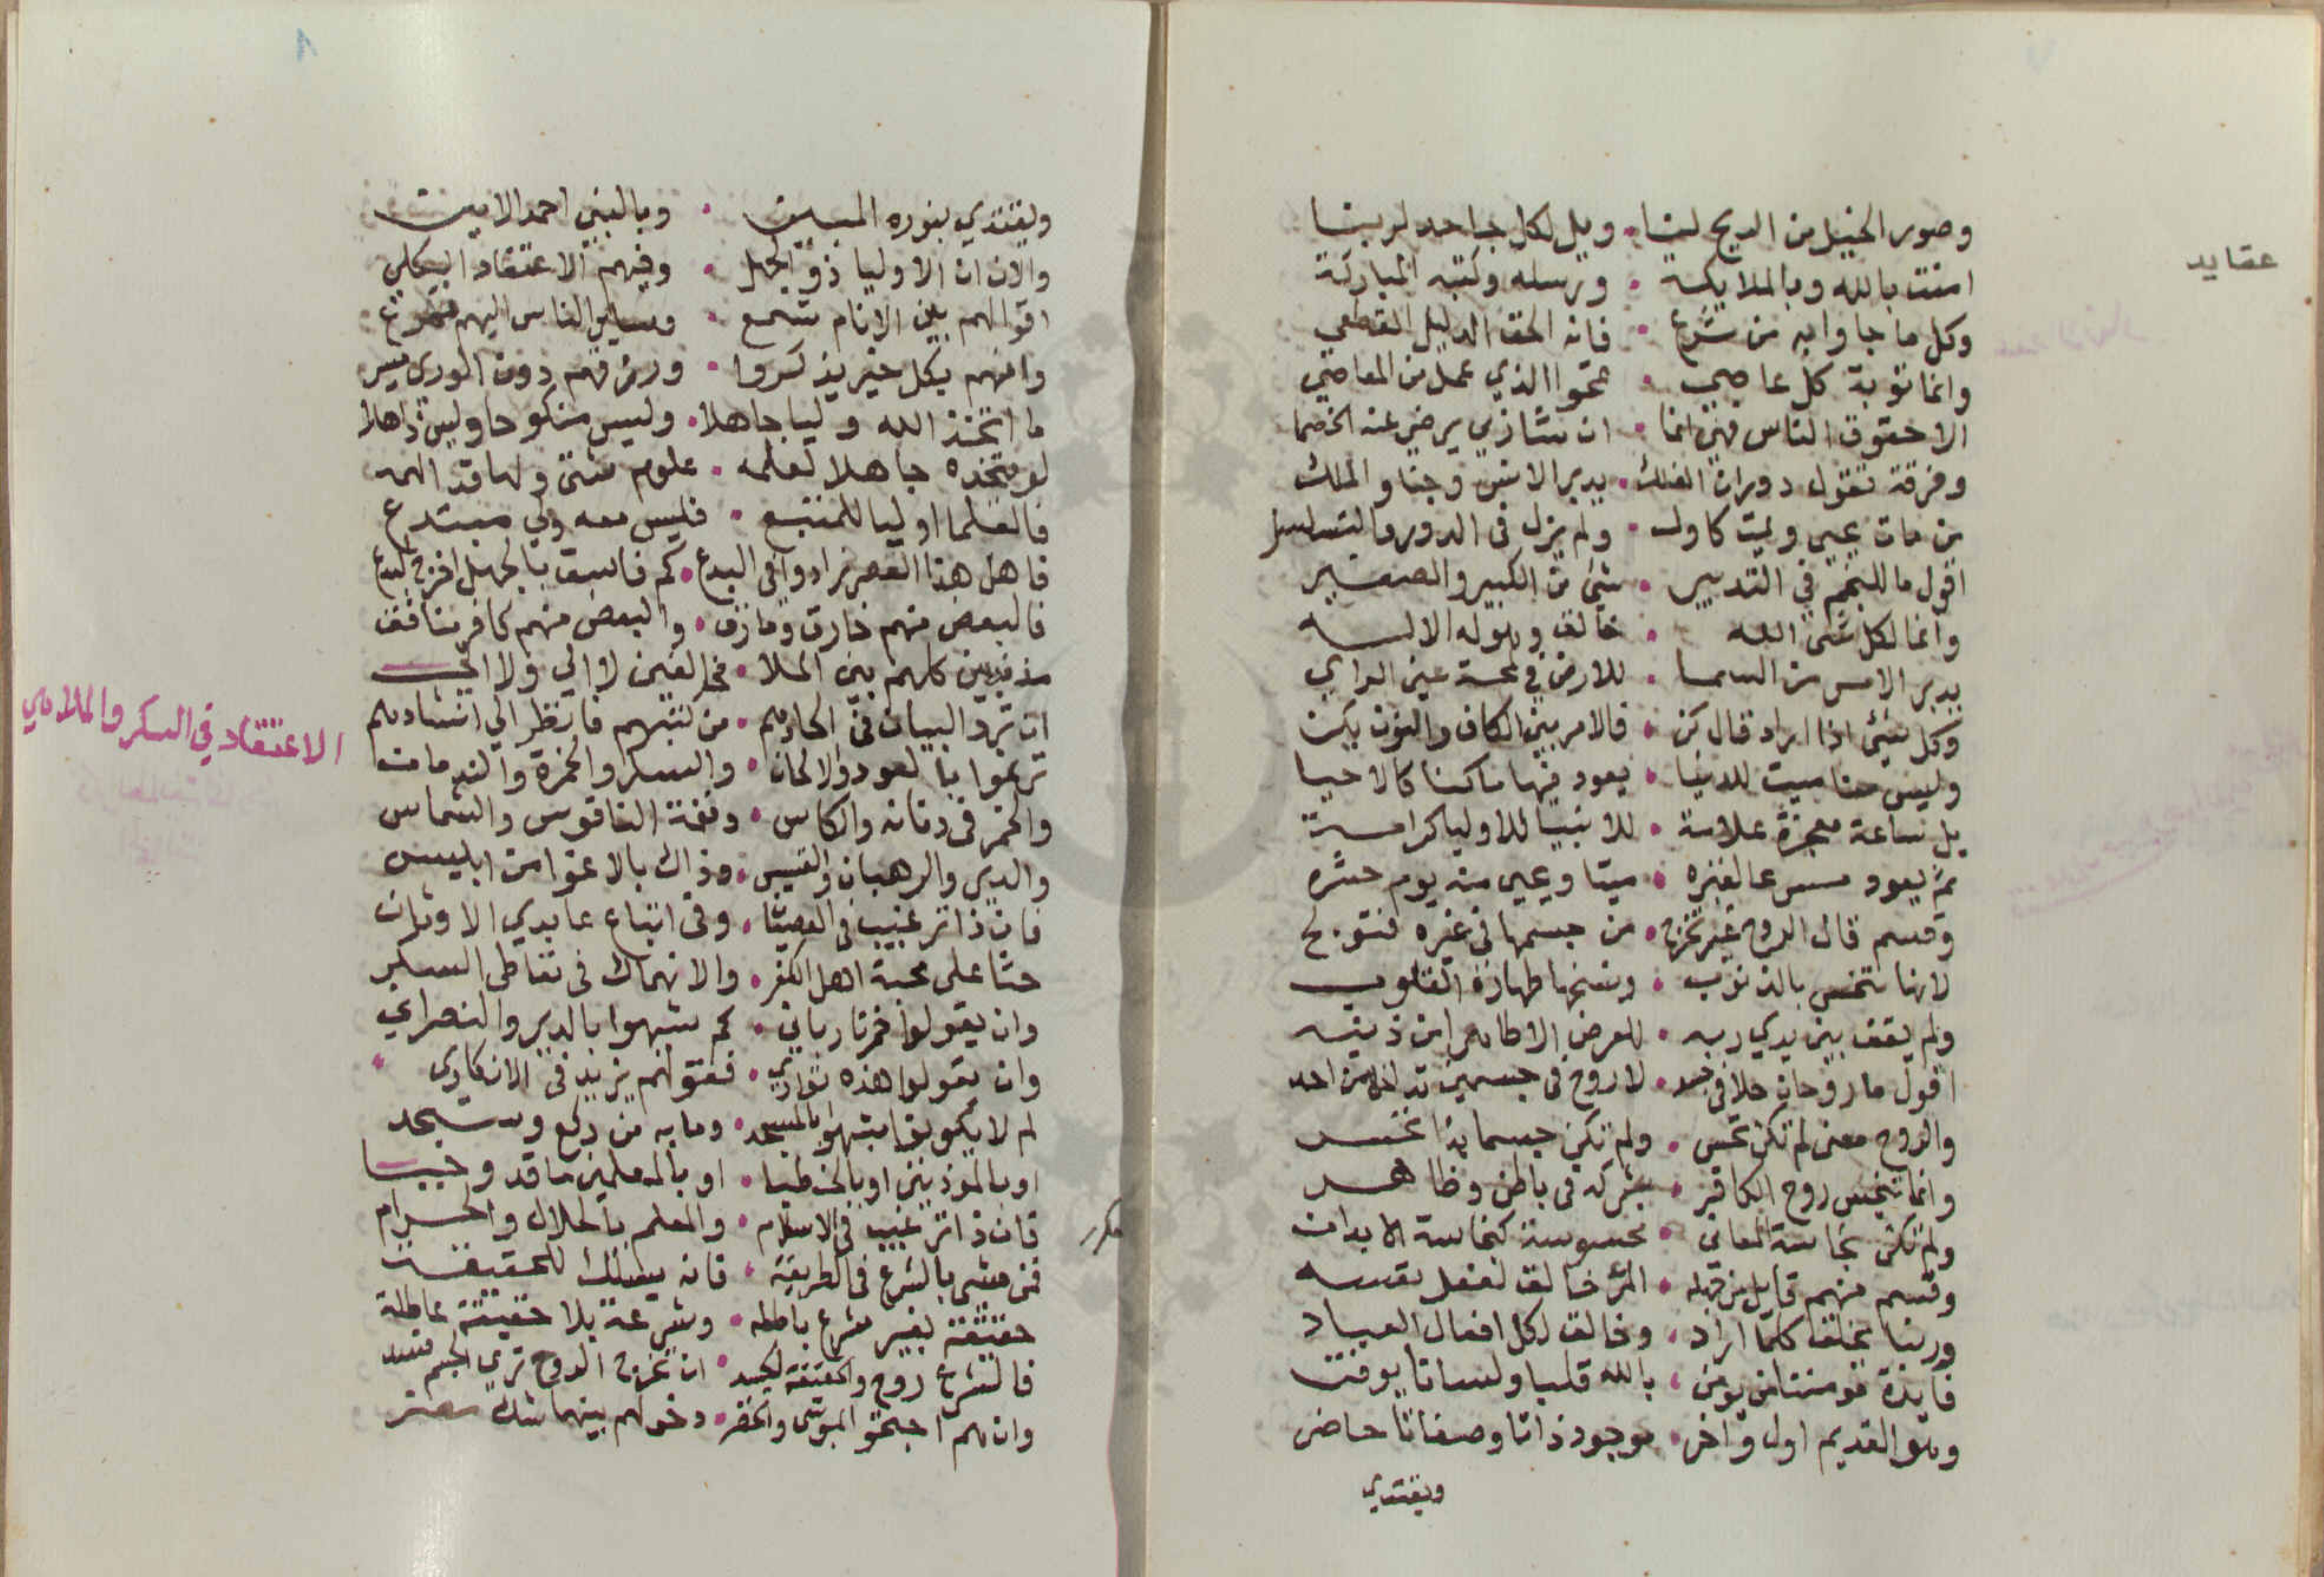 عقايد
وصور الخيل من الريح لنا • ويل لكل جاحد لربنا
امنت بالله وبالملايكه • ورسله وكتبه المباركة
وكل ما جاوا به من شرع • فانه الحق الدليل القطعي
وانما توبة كل عاصي • تمحوا الذي عمل من المعاصي
الا حقوق الناس فهي انما • ان شا ربي يرضي عنه الخصما
وفرقة تقول دوران الفلك • يدبر الانس وجنا والملك
من مات يحيى ويميت كاول • ولم يزل في الدور والتسلسل
اقول ما للنجم في التدبير • شئ من الكبير والصغير
وانما لكل شئ الله • خالق وهو له الاله
يدبر الامر من السما • للارض في لمحة عين الرائي
وكل شئ اذا اراد قال كن • فالامر بين الكاف والنون يكن
وليس منا ميت للدنيا • يعود فيها ماكنا كالاحيا
بل ساعة معجزة علامة • للانبيا للاوليا كرامة
ثم يعود مسرعا لقبره • ميتا ويحيى منه يوم حشره
وقسم قال الروح غير تخرج • من جسمها في غيره فتولج
لانها تنجس بالذنوب • ونسخها طهارة القلوب
ولم يقف بين يدي ربه • للعرض الا طاهرا من ذنبه
اقول ما روحان حلا في جسد • لا روح في جسمين تدخل من احد
والروح معنى لم تكن تحس • ولم تكن جسما بذا تنجس
وانما تنجس روح الكافر • بشركه في باطن وظاهر
ولم تكن نجاسة المعاني • محسوسة كنجاسة الابدان
وقسم منهم قايل من قبله • المرء خالق لفعل نفسه
وربنا يخلق كلما اراد • وخالق لكل افعال العباد
فايدة مومننا من يومن • بالله قلبا ولسانا يوقن
وهو القديم اول واخر • موجود ذاتا وصفاتا حاضر
ويقتدي
ويقتدي بنوره المبين • وبالنبي احمد الامين
والان ان الاوليا ذو الجهل • وفيهم الاعتقاد الكلي
اقوالهم بين الانام تسمع • وساير الناس اليهم تهرع
وانهم بكل خير يذكروا • ورزقهم دون الورى ميسر
ما اتخذ الله وليا جاهلا • وليس منكوحا وليس ذاهلا
لو يتخذه جاهلا لعلمه • علوم شتى ولها قد الهمه
فالعلما اوليا للمتبع • فليس معه ولي مبتدع
فاهل هذا العصر زادوا في البدع • كم فاسق بالجهل اخرج لبدع
فالبعض منهم خارق ومارق • والبعض منهم كافر منافق
مذبذبين كلهم بين الملا • مخالفين لا الي ولا الي
ان ترد البيان في الحادهم • من كتبهم فانظر الي انشادهم
ترنموا بالعود والالحان • والسكر والخمرة والندمان
والخمر في دنانه والكاس • ودقة الناقوس والشماس
والدير والرهبان والقسيس • وذاك بالاغوا من ابليس
فان ذا ترغيب في العصيان • وفي اتباع عابدي الاوثان
حثا على محبة اهل الكفر • والانهماك في تعاطي السكر
وان يقولوا خمرنا رباني • كم شبهوا بالدير والنصراني
وان يقولوا هذه تواري • فقولهم يزيد في الانكاري
لم لا يكونوا شبهوا بالمسجد • وما به من ركع وسجد
او بالموذنين او بالخطبا • او بالمعلمين ما قد وجبا
فان ذا ترغيب في الاسلام • والعلم بالحلال والحرام
فمن مشى بالشرع في الطريقة • فانه يسلك للحقيقة
حقيقة بغير شرع باطلة • وشرعة بلا حقيقة عاطلة
فالشرع روح والحقيقة الجسد • ان تخرج الروح ترى الجسم فسد
وانهم احتجوا بموسى والخضر • دخولهم بينهما شك مضر
الاعتقاد في السكر والملاهي
مكرر